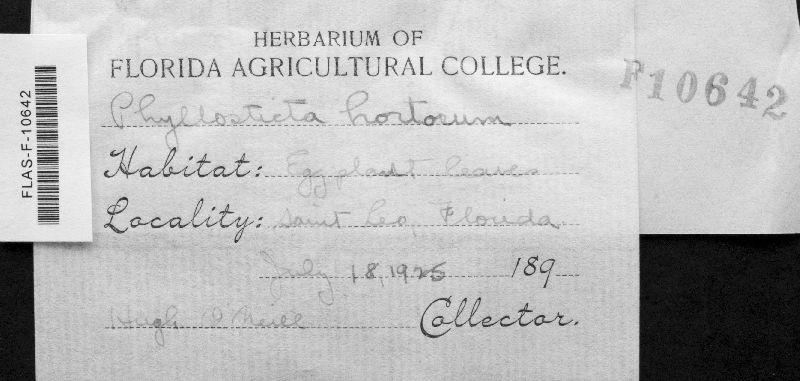 HERBARIUM OF
FLORIDA AGRICULTURAL COLLEGE.
F10642
FLAS-F-10642
Phyllosticta hortorum
Habitat: Eggplant leaves
Locality: Saint Leo, Florida
July 18, 1925 189
Hugh O'Neill Collector.